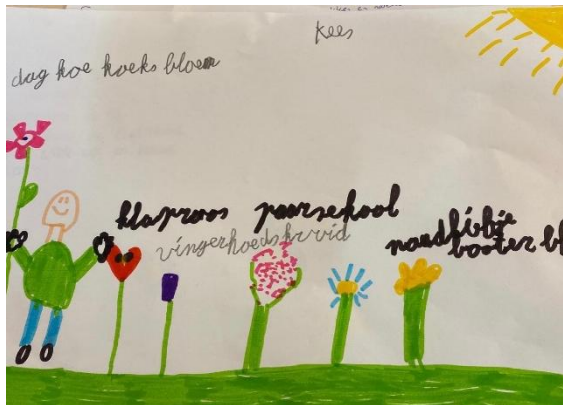 Kees
dag koe koeks bloem
klaproos paarsekool
vingerhoedskruid
booter bl